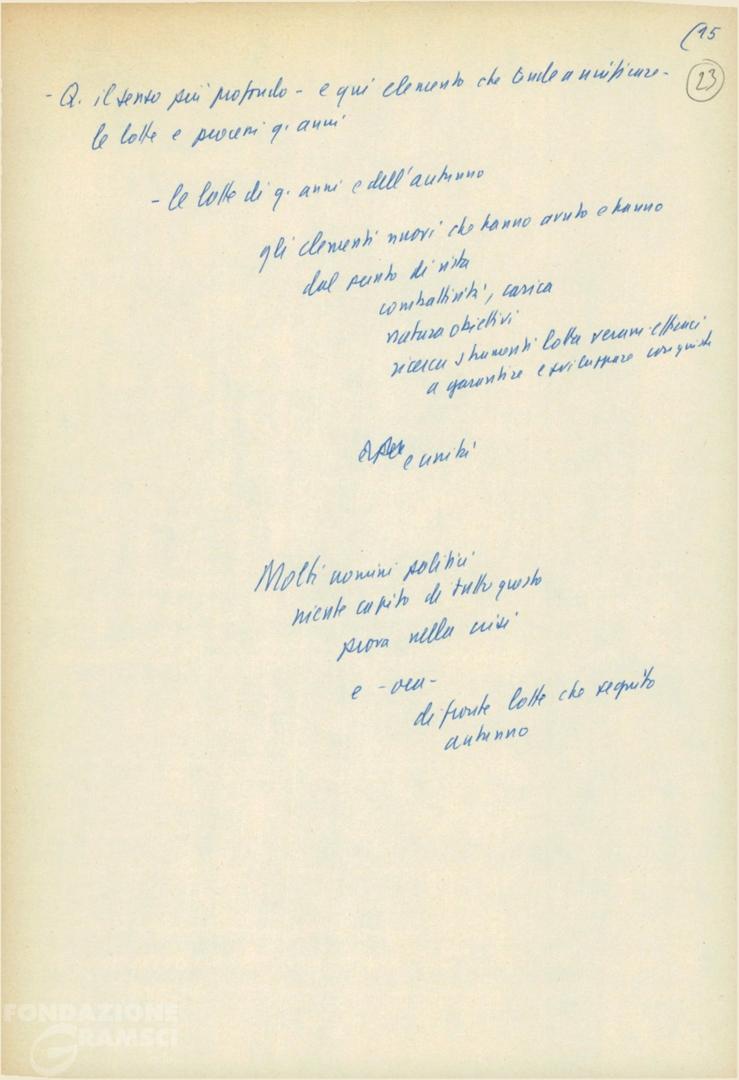 (15
23
- Q. il senso più profondo - e qui elemento che tende a unificare -
le lotte e processi q. anni
- le lotte di q. anni e dell'autunno
gli elementi nuovi che hanno avuto e hanno
dal punto di vista
combattività, carica
natura obiettivi
ricerca strumenti lotta veram. efficaci
a garantire e sviluppare conquiste
e unità
Molti uomini politici
niente capito di tutto questo
prova nella crisi
e - ora -
di fronte lotte che seguito
autunno
FONDAZIONE
GRAMSCI